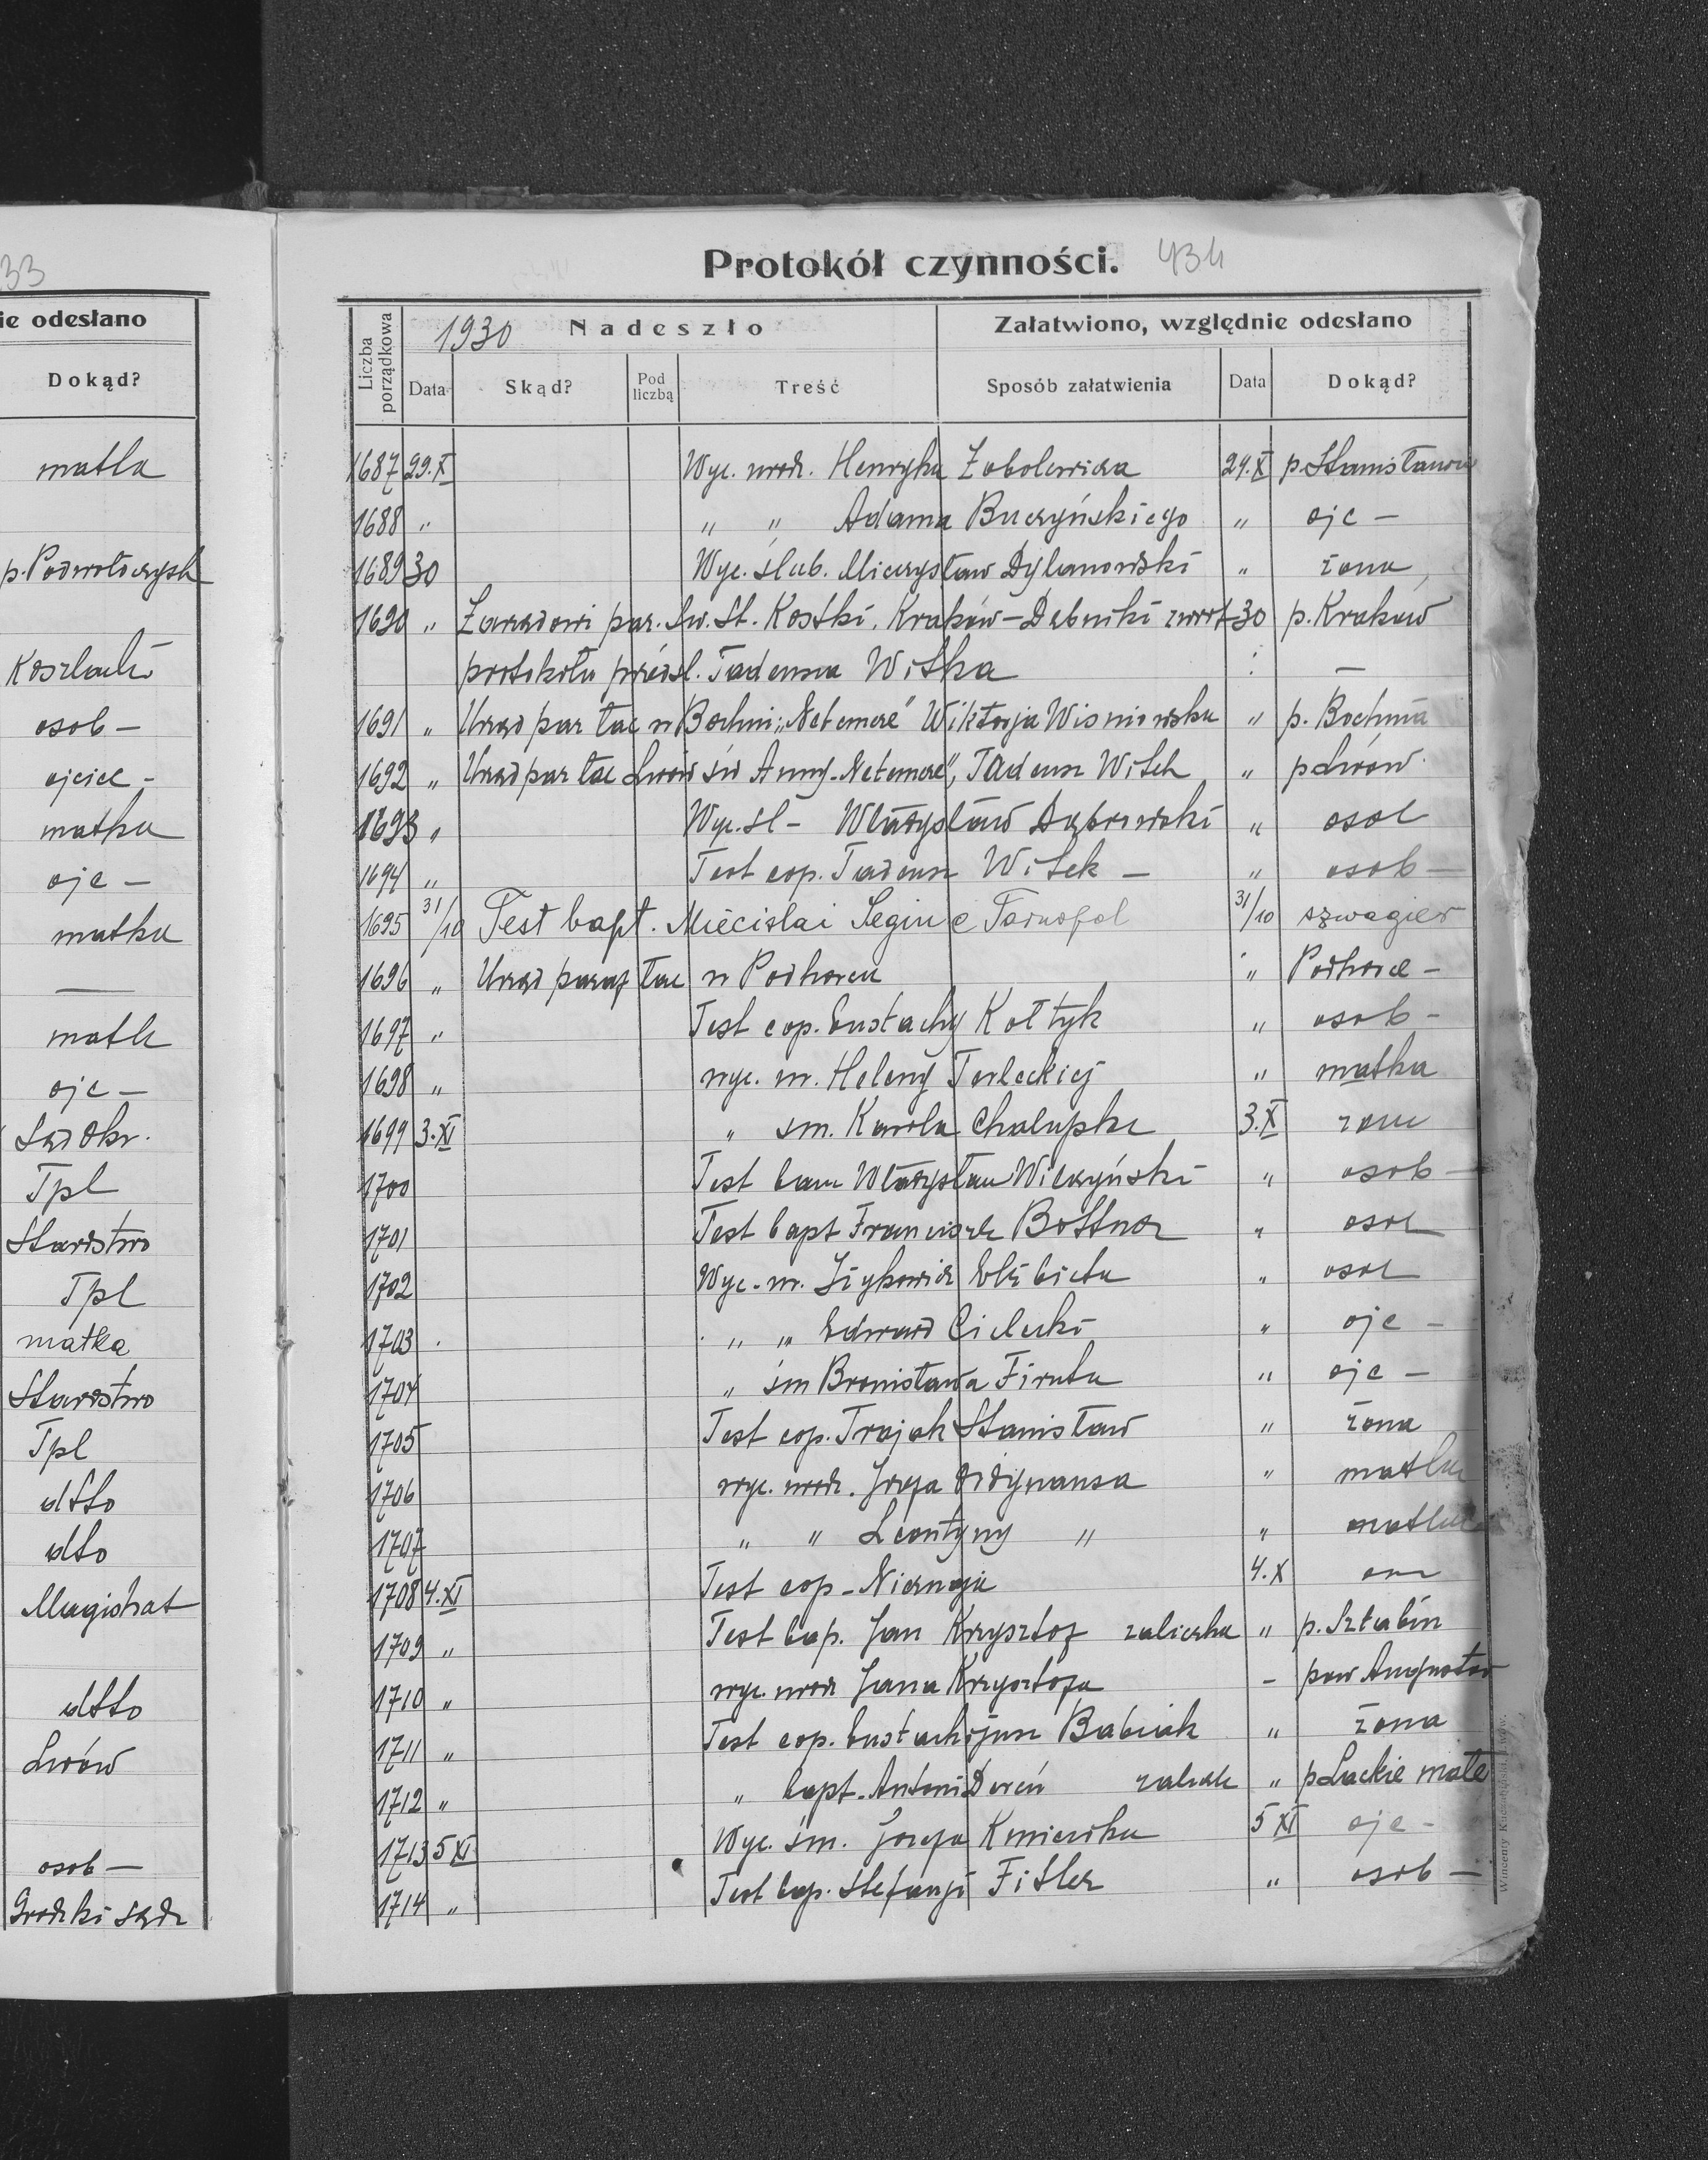 33
ie odesłano
Dokąd?
matka
p. Podwołoczysk
Koszlaki
osob –
ojciec –
matka
ojc –
matka
—
matk
ojc –
Sąd Okr.
Tpl
Starostwo
Tpl
matka
Starostwo
Tpl
dtto
dto
Magistrat
dtto
Lwów
osob –
Grodzki sąd
Protokół czynności. 434
Liczba porządkowa
1930 Nadeszło
Załatwiono, względnie odesłano
Data Skąd? Pod liczbą Treść Sposób załatwienia Data Dokąd?
1687 29.X Wyc. urodz. Henryka 29.X p. Stanisławów
1688 " " " Adama Buczyńskiego " ojc –
1689 30 Wyc. ślub. Mieczysław Dylanowski " żona
1690 " Zarządowi par. św. St. Kostki, Kraków – Dębniki zwrot 30 p. Kraków
protokołu przedśl. Tadeusza Witka
1691 " Urząd par łac w Bochni; „Ne temere" Wiktorja Wisniowska " p. Bochnia
1692 " Urząd par łac Lwów św Anny – Ne temere", Tadeusz Witek " p Lwów
1693 " Wyc. śl – Władysław Dąbrowski " osob
1694 " Test cop. Tadeusz Witek – " osob –
1695 31/10 Test bapt. Miecislai Segin e Tarnopol 31/10 szwagier
1696 " Urząd paraf łac w " –
1697 " Test cop. Eustachy Kołtyk " osob –
1698 " wyc. ur. Heleny Terleckiej " matka
1699 3.XI " śm. Karola Chalupka 3.X żona
1700 Test Władysław Wilczyński " osob –
1701 Test bapt Franciszek " osob
1702 Wyc. ur. Elżbieta " osob
1703 " " Edward Cielecki " ojc –
1704 " śm Bronisława Firuta " ojc –
1705 Test cop. Trojak Stanisław " żona
1706 wyc. urodz. Józefa " matka
1707 " " Leontyny " " matka
1708 4.XI Test cop – 4.X
1709 " Test bap. Jan Krzysztof zaliczka " p. Sztabin
1710 " wyc. urodz Jana Krzysztofa – pow Augustów
1711 " Test cop. Eustachijusz Babiak " żona
1712 " " bapt. Antoni Dereń " p Lackie małe
1713 5 XI Wyc. śm. Józefa 5 XI ojc –
1714 " Test bap. Stefanji " osob –